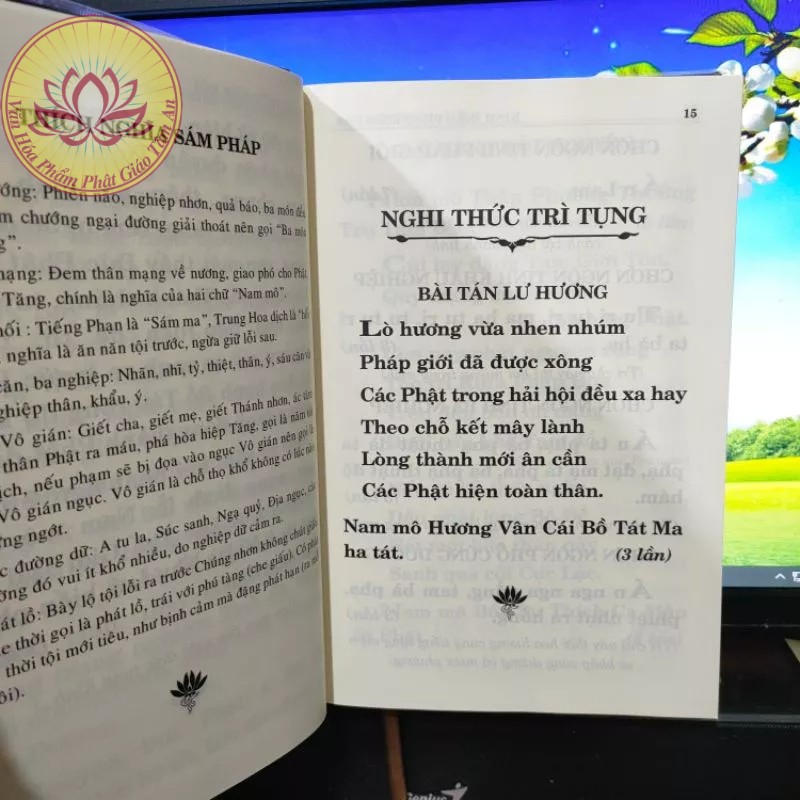 Văn Hóa Phẩm Phật Giáo Tâm An
THÍCH NGHĨA SÁM PHÁP
Phiền não, nghiệp nhơn, quả báo, ba món
chướng ngại đường giải thoát nên gọi “Ba
Đem thân mạng về nương, giao phó cho Phật,
Tăng, chính là nghĩa của hai chữ “Nam mô”.
: Tiếng Phạn là “Sám ma”, Trung Hoa dịch là
nghĩa là ăn năn tội trước, ngừa giữ lỗi sau.
ba nghiệp: Nhãn, nhĩ, tỷ, thiệt, thân, ý, sáu căn
thân, khẩu, ý.
Vô gián: Giết cha, giết mẹ, giết Thánh nhơn, ác tâm
thân Phật ra máu, phá hòa hiệp Tăng, gọi là năm
nếu phạm sẽ bị đọa vào ngục Vô gián nên gọi
Vô gián ngục. Vô gián là chỗ thọ khổ không có lúc
ngớt.
đường dữ: A tu la, Súc sanh, Ngạ quỷ, Địa ngục,
đó vui ít khổ nhiều, do nghiệp dữ cảm ra.
lồ: Bày lộ tội lỗi ra trước Chúng nhơn không chút
thời gọi là phát lồ, trái với phú tàng (che giấu). Có
thời tội mới tiêu, như bịnh cảm mà đặng phát hạn
15
NGHI THỨC TRÌ TỤNG
BÀI TÁN LƯ HƯƠNG
Lò hương vừa nhen nhúm
Pháp giới đã được xông
Các Phật trong hải hội đều xa hay
Theo chỗ kết mây lành
Lòng thành mới ân cần
Các Phật hiện toàn thân.
Nam mô Hương Vân Cái Bồ Tát Ma
ha tát. (3 lần)
Genius